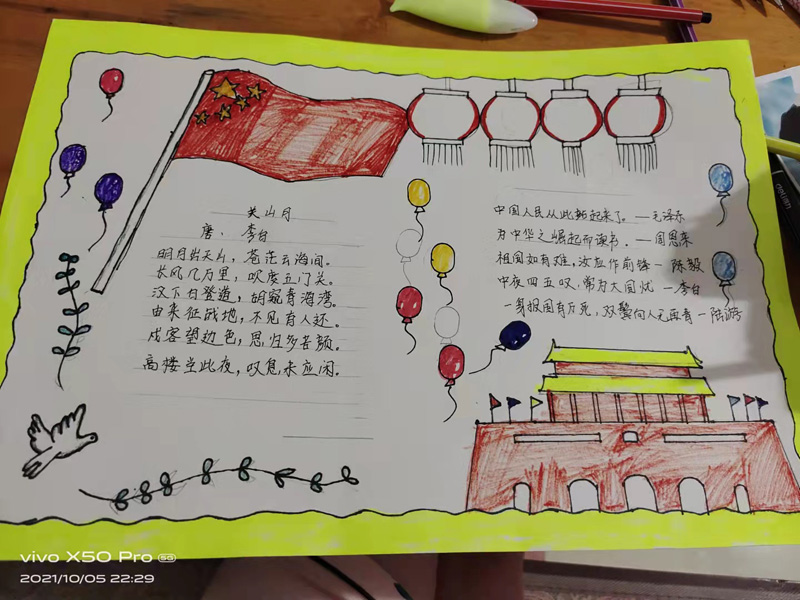 关山月
唐、李白
明月出天山，苍茫云海间。
长风几万里，吹度玉门关。
汉下白登道，胡窥青海湾。
由来征战地，不见有人还。
戍客望边色，思归多苦颜。
高楼当此夜，叹息未应闲。
中国人民从此站起来了。—毛泽东
为中华之崛起而读书．—周恩来
祖国如有难，汝应作前锋—陈毅
中夜四五叹，常为大国忧—李白
一身报国有万死，双鬓向人无再青—陆游
vivo X50 Pro 5G
2021/10/05 22:29